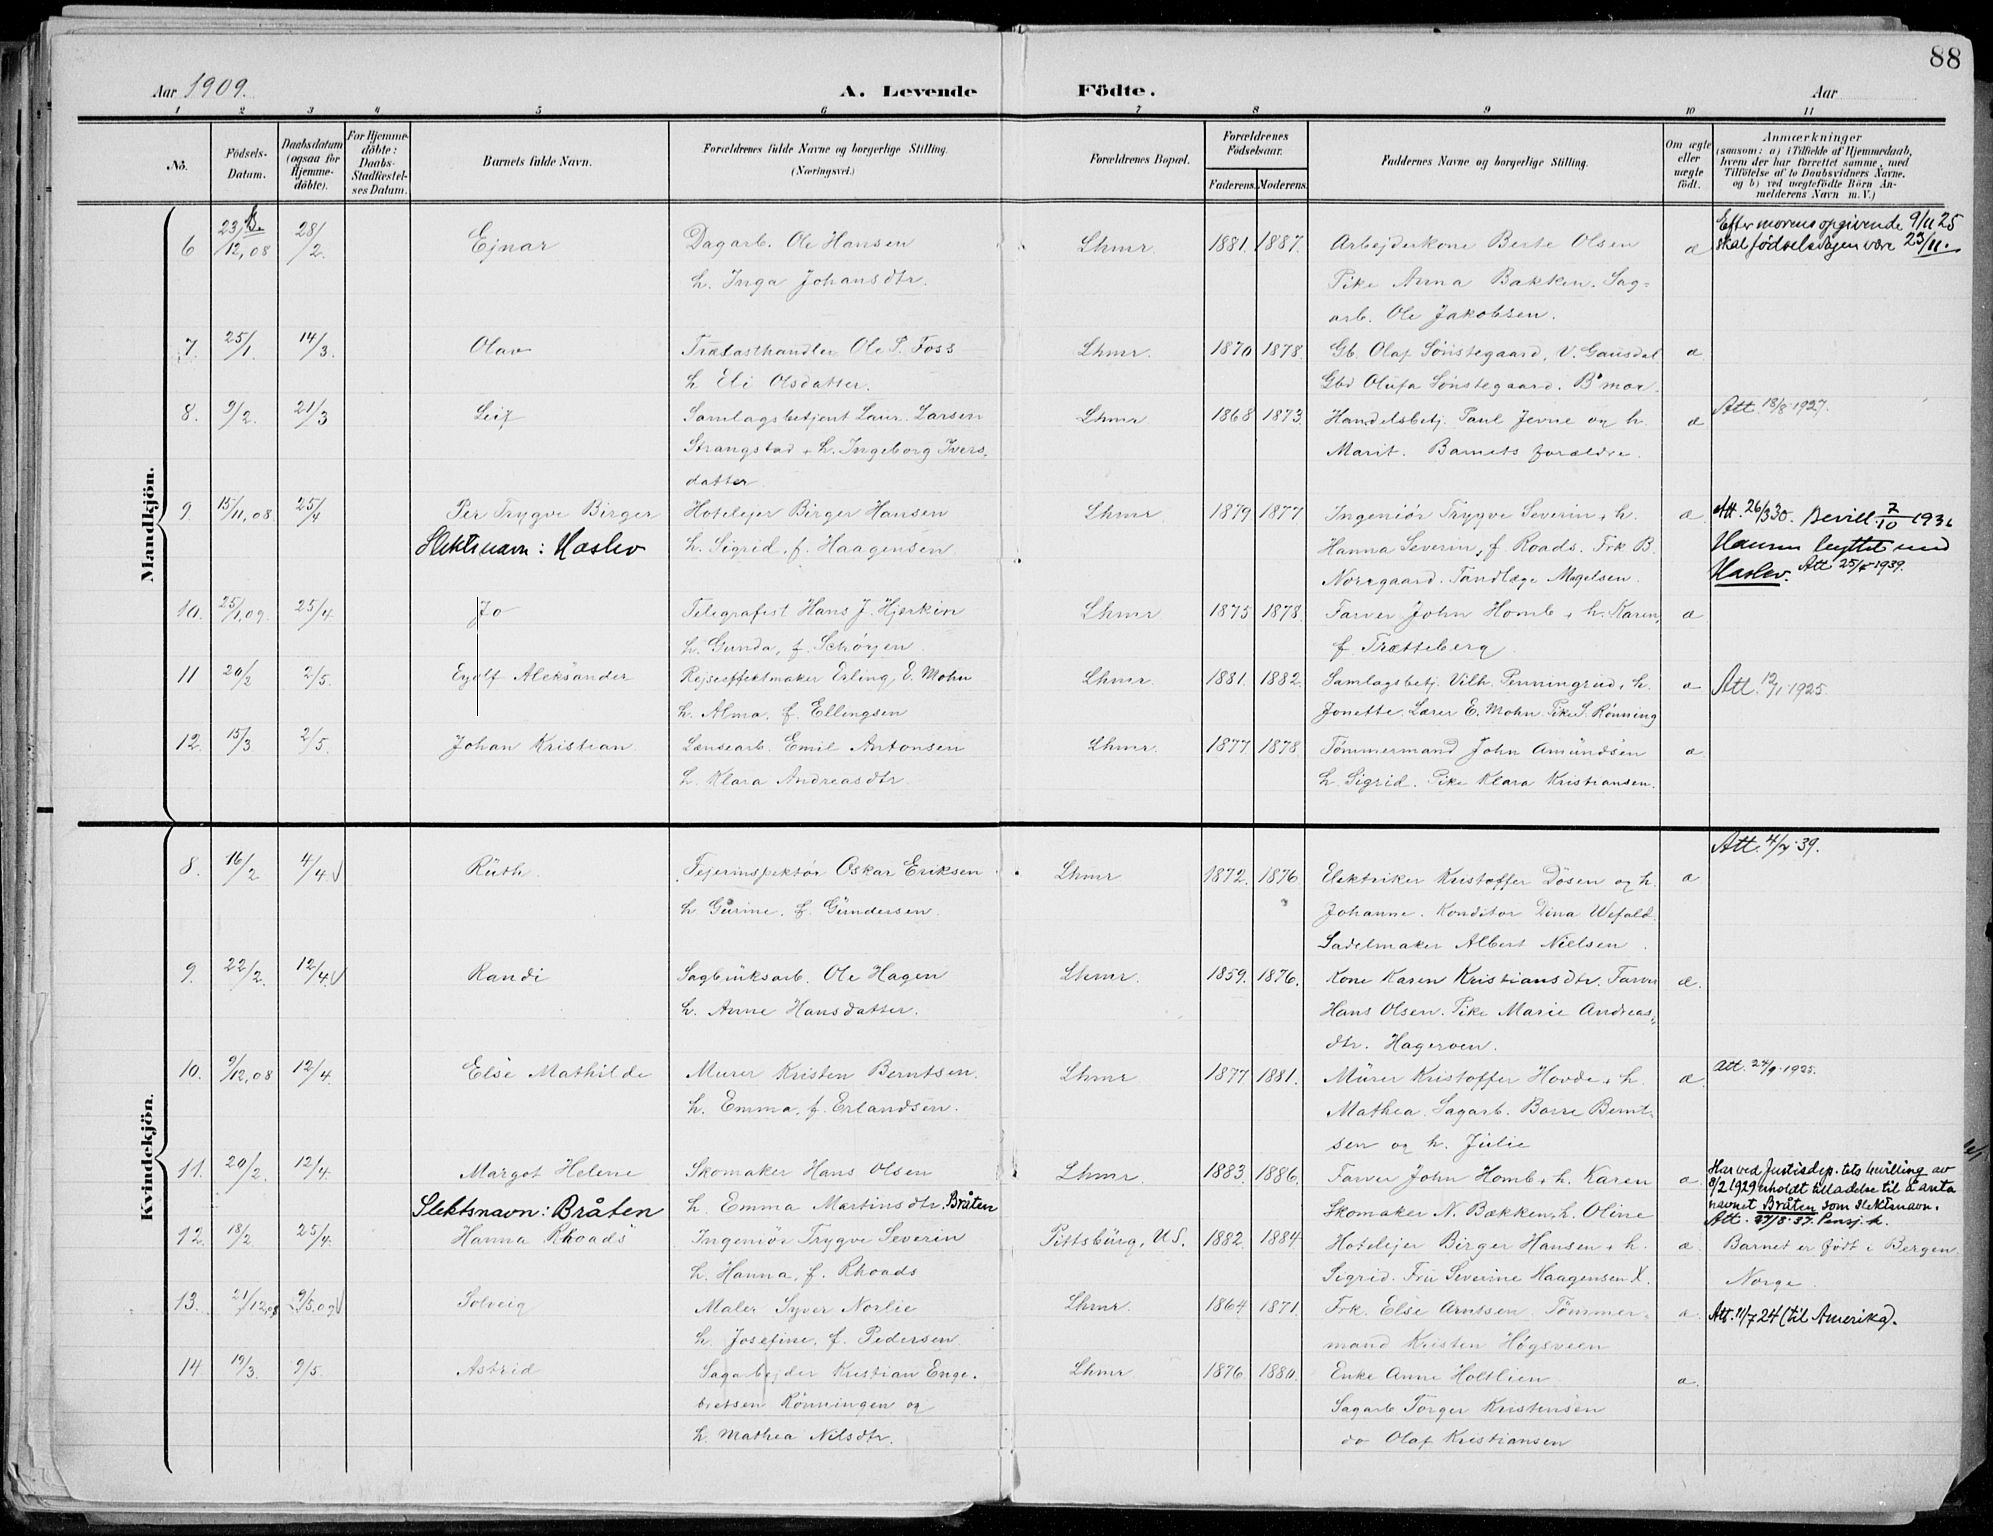 88
Aar 1909. A. Levende Födte. Aar
1 2 3 4 5 6 7 8 9 10 11
No. Födsels-Datum. Daabsdatum (ogsaa for Hjemmedöbte). For Hjemmedöbte: Daabs-Stadfæstelses Datum. Barnets fulde Navn. Forældrenes fulde Navne og borgerlige Stilling. (Næringsvei.) Forældrenes Bopæl. Forældrenes Födselsaar. Faderens. Moderens. Faddernes Navne og borgerlige Stilling. Om ægte eller uægte födt. Anmærkninger (saasom: a) i Tilfælde af Hjemmedaab, hvem der har forrettet samme, med Tilföielse af to Daabsvidners Navne, og b) ved uægtefödte Börn Anmelderens Navn m. V.)
Mandkjön.
6 23/12,08 28/2. Ejnar Dagarb. Ole Hansen Lhmr. 1881. 1887. Arbejderkone Berte Olsen æ Efter morens opgivende 9/11 25
skal fødselsdagen være 23/11.
h. Inga Johansdtr. Pike Anna Bakken. Sag-
arb. Ole Jakobsen.
7 25/1. 14/3. Olav Trælasthandler Ole P. Foss Lhmr. 1870 1878. Gb. Olaf Sønstegaard, V. Gausdal æ
h Eli Olsdatter. Gbd Olufa Sønstegaard. B'mor.
8. 9/2. 21/3 Leif Samlagsbetjent Laur. Larsen Lhmr 1868 1873. Handelsbetj. Paul Jevne og h. æ Att. 18/8 1927.
Strangstad + h. Ingeborg Ivers- Marit. Barnets forældre.
datter
9. 15/11,08. 25/4 Per Trygve Birger Hotelejer Birger Hansen Lhmr 1879 1877 Ingeniør Trygve Severin + h. æ Att. 26/3 30. Bevill. 7/10 193
Slektsnavn: Haslev h. Sigrid, f. Haagensen Hanna Severin, f. Roads. Frk B. Hansen byttet med
Norregaard. Tandlæge Magelsen. Haslev. Att 25/ 1939.
10. 25/1,09. 25/4. Jo Telegrafist Hans J. Hjerkin Lhmr 1875 1878. Farver John Homb + h. Karen, æ
h. Gunda, f. Schøyen. f Trætteberg.
11 20/2 2/5. Eyolf Aleksander Rejseeffektmaker Erling E. Mohn Lhmr. 1881. 1882. Samlagsbetj. Vilh. Penningrud, h. æ Att. 12/1 1925.
h. Alma, f. Ellingsen Jonette. Lærer E. Mohn. Pike S. Rønning
12. 15/3 2/5. Johan Kristian Lænsearb. Emil Antonsen Lhmr. 1877 1878. Tømmermand John Amundsen æ
h. Klara Andreasdtr. h. Sigrid. Pike Klara Kristiansen.
Kvindekjön.
Att. 4/ 39.
8. 16/2 4/4. Ruth. Fejerinspektør Oskar Eriksen Lhmr 1872. 1876 Elektriker Kristoffer Dösen og h. æ
h Gurine. f. Gundersen. Johanne. Konditor Dina Wefald.
Sadelmaker Albert Nielsen.
9. 22/2. 12/4. Randi Sagbruksarb. Ole Hagen Lhmr. 1859. 1876. Kone Karen Kristiansdtr. Farver æ.
h. Anne Hansdatter. Hans Olsen. Pike Marie Andreas-
dtr. Hageroen.
10. 9/12,08 12/4. Else Mathilde Murer Kristen Berntsen. Lhmr 1877 1881. Murer Kristoffer Hovde + h. æ Att. 24/9 1925.
h. Emma, f. Erlandsen. Mathea. Sagarb. Borre Bernt-
sen og h. Julie
11. 20/2. 12/4. Margot Helene Skomaker Hans Olsen Lhmr. 1883. 1886. Farver John Homb + h. Karen æ Har ved Justisdep.tets bevilling av
8/2 1929 erholdt tilladelse til å anta
Slektsnavn: Bråten h. Emma Martinsdtr. Bråten Skomaker N. Bækken, h. Oline navnet Bråten som slektsnavn.
Att. 23/8 37. Pensj. k.
12. 18/2 25/4. Hanna Rhoads Ingeniør Trygve Severin Pittsburg, U.S. 1882. 1884 Hotelejer Birger Hansen + h. æ. Barnet er født i Bergen
h. Hanna, f. Rhoads Sigrid. Fru Severine Haagensen X. Norge.
13. 21/12,08 9/5.09 Solveig Maler Syver Norlie Lhmr. 1864 1871 Frk. Else Arntsen. Tømmer- æ. Att. 11/7 24 (til Amerika).
h. Josefine, f. Pedersen. mand Kristen Høgsveen
14. 19/3. 9/5. Astrid Sagarbejder Kristian Enge- Lhmr 1876. 1880. Enke Anne Holtlien. æ.
bretsen Rönningen og Sagarb Torger Kristensen
h. Mathea Nilsdtr. do Olaf Kristiansen